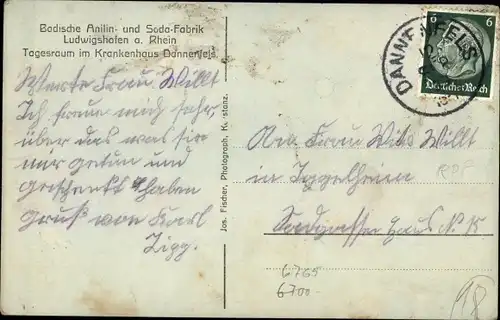 Badische Anilin- und Soda-Fabrik
Ludwigshafen a. Rhein
Tagesraum im Krankenhaus Dannenfels
Werte Frau Willt
Ich freue mich sehr
über das was sie
mir getun und
geschenkt haben
Gruß von Karl
Zigg.
Jos. Fischer, Photograph, Konstanz.
DANNENFELS
6 6
Deutsches Reich
An Frau Willt
in Iggelheim
Haus N. 15
6765
6700
98